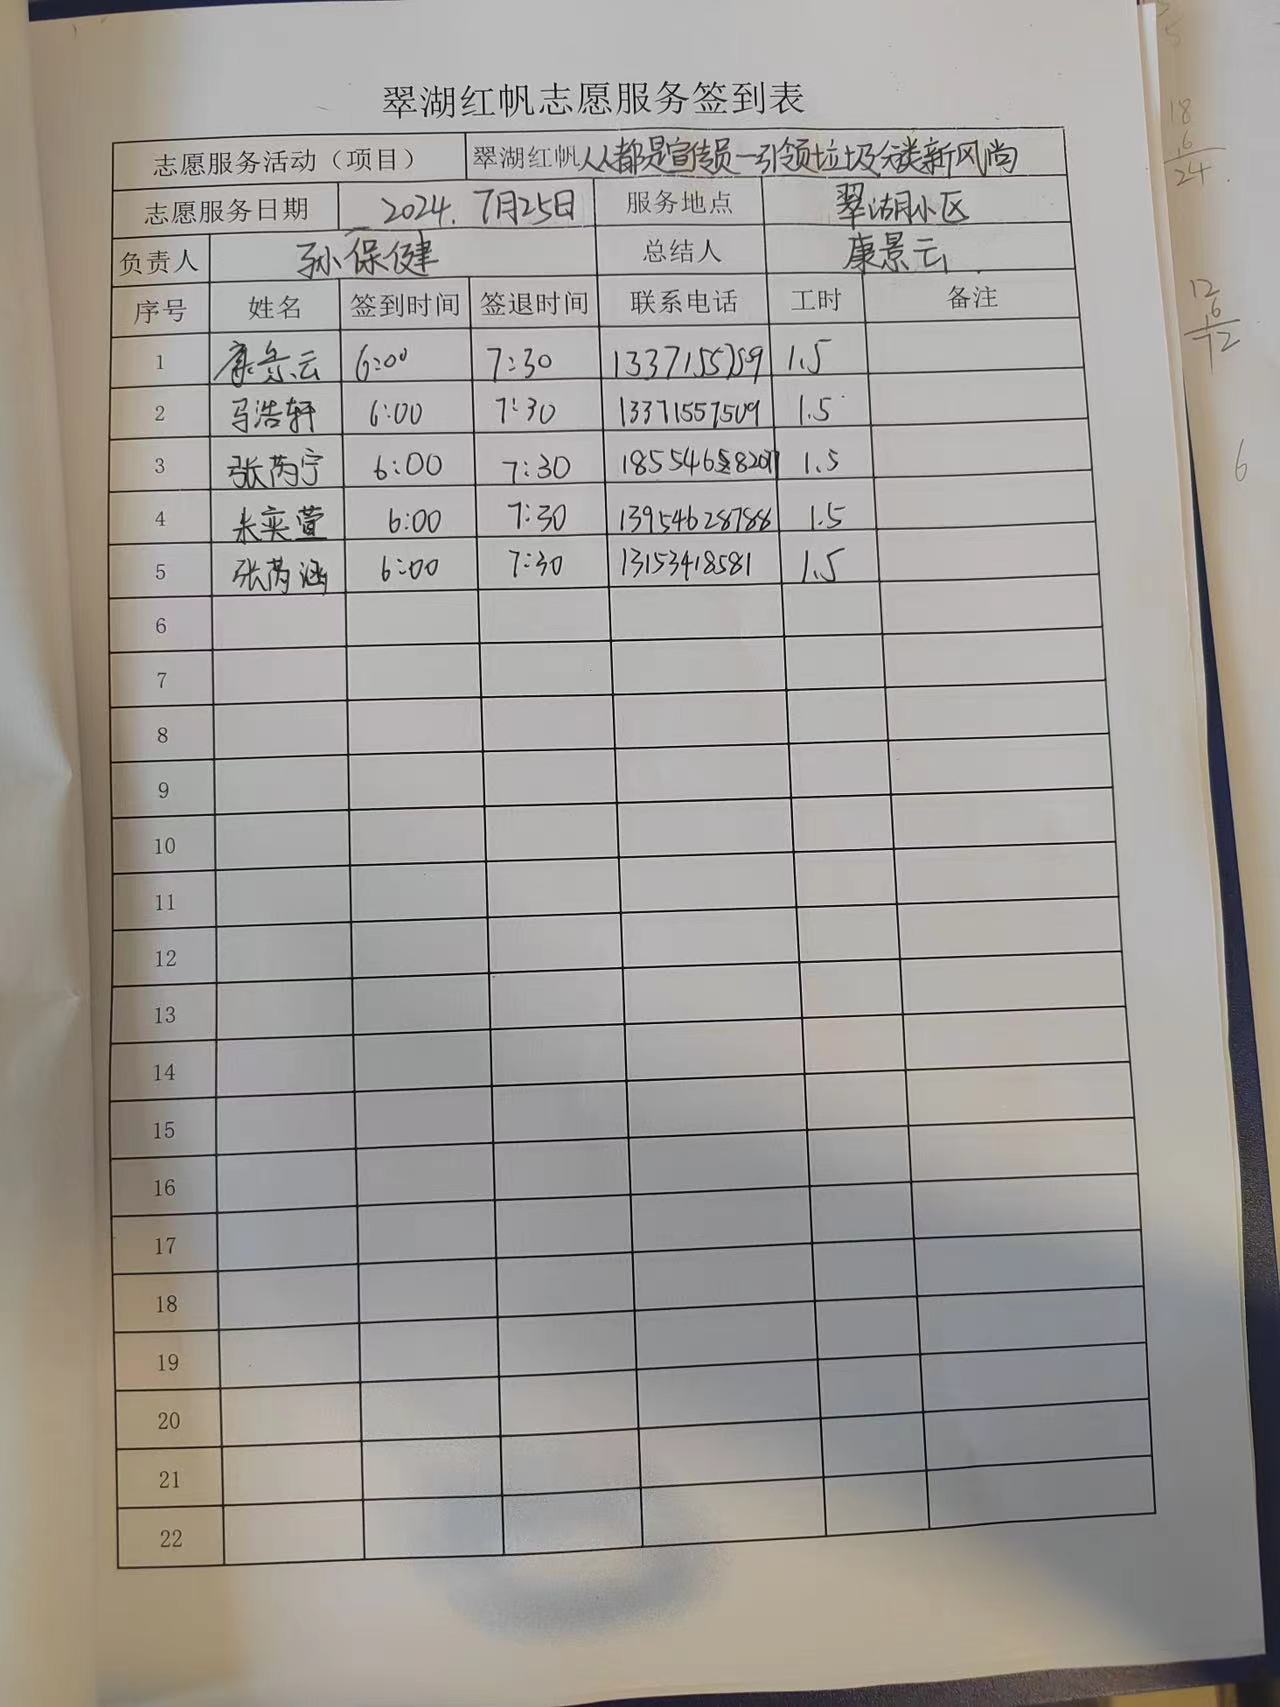 翠湖红帆志愿服务签到表
志愿服务活动（项目） 翠湖红帆人人都是宣传员一引领垃圾分类新风尚
志愿服务日期 2024.7月25日 服务地点 翠湖小区
负责人 孙保健 总结人 康景云
序号 姓名 签到时间 签退时间 联系电话 工时 备注
1 康景云 6:00 7:30 1.5
2 马浩轩 6:00 7:30 13371557509 1.5
3 张芮宁 6:00 7:30 1.5
4 奕萱 6:00 7:30 13954628788 1.5
5 张芮涵 6:00 7:30 13153418581 1.5
6
7
8
9
10
11
12
13
14
15
16
17
18
19
20
21
22
18
6
24
12
6
72
6